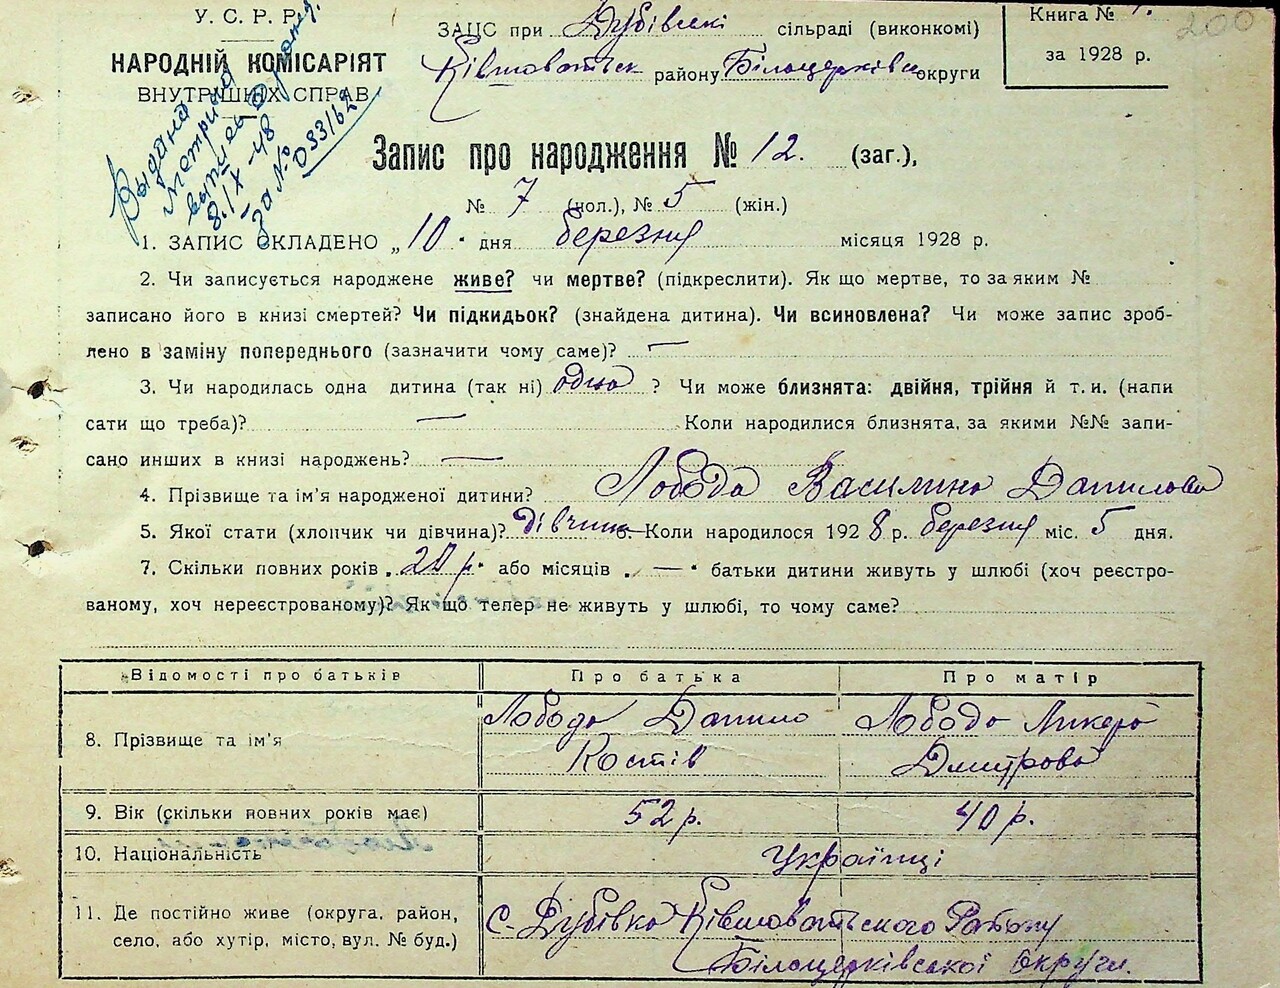 У. С. Р. Р.
НАРОДНІЙ КОМІСАРІЯТ
ВНУТРІШНІХ СПРАВ
Выдана
метрич
выпись
8.IX-48
за № 033162
ЗАЦС при Дубівській сільраді (виконкомі)
Ківшоватськ району Білоцерківськ округи
Книга № 1.
за 1928 р.
200
Запис про народження № 12. (заг.),
№ 7 (чол.), № 5 (жін.)
1. ЗАПИС СКЛАДЕНО „10" дня березня місяця 1928 р.
2. Чи записується народжене живе? чи мертве? (підкреслити). Як що мертве, то за яким №
записано його в книзі смертей? Чи підкидьок? (знайдена дитина). Чи всиновлена? Чи може запис зроб-
лено в заміну попереднього (зазначити чому саме)? —
3. Чи народилась одна дитина (так ні) одна ? Чи може близнята: двійня, трійня й т. и. (напи
сати що треба)? — Коли народилися близнята, за якими №№ запи-
сано инших в книзі народжень? —
4. Прізвище та ім'я народженої дитини? Лобода Василина Данилова
5. Якої стати (хлопчик чи дівчина)? дівчина 6. Коли народилося 1928 р. березня міс. 5 дня.
7. Скільки повних років „20 р." або місяців „—" батьки дитини живуть у шлюбі (хоч реєстро-
ваному, хоч нереєстрованому)? Як що тепер не живуть у шлюбі, то чому саме?
Відомості про батьків Про батька Про матір
8. Прізвище та ім'я Лобода Данило Костів Лобода Ликера Дмитрова
9. Вік (скільки повних років має) 52 р. 40 р.
10. Національність Українці
11. Де постійно живе (округа, район, с. Дубівка Ківшоватського Району
село, або хутір, місто, вул. № буд.) Білоцерківської Округи.